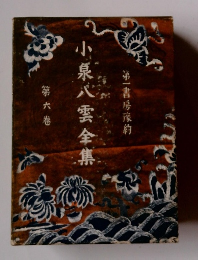 第一書房豫約
小泉八雲全集
第六巻